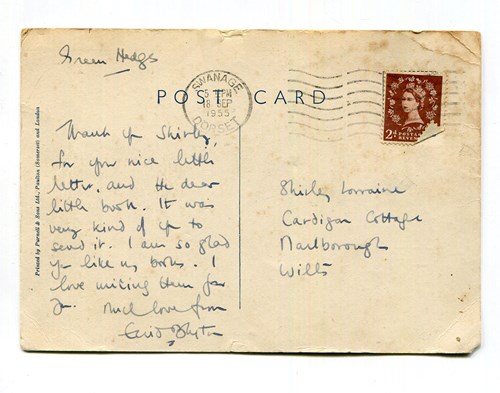 Green Hedges
POST CARD
SWANAGE
5 PM
8 SEP
1955
DORSET
2D
Thank you Shirley,
for your nice little
letter, and the dear
little book. It was
very kind of you to
send it. I am so glad
you like my books. I
love writing them for
you. Much love from
Enid Blyton
Shirley Lorraine
Cardigan Cottage
Marlborough
Wilts
Printed by Purnell & Sons Ltd., Paulton (Somerset) and London